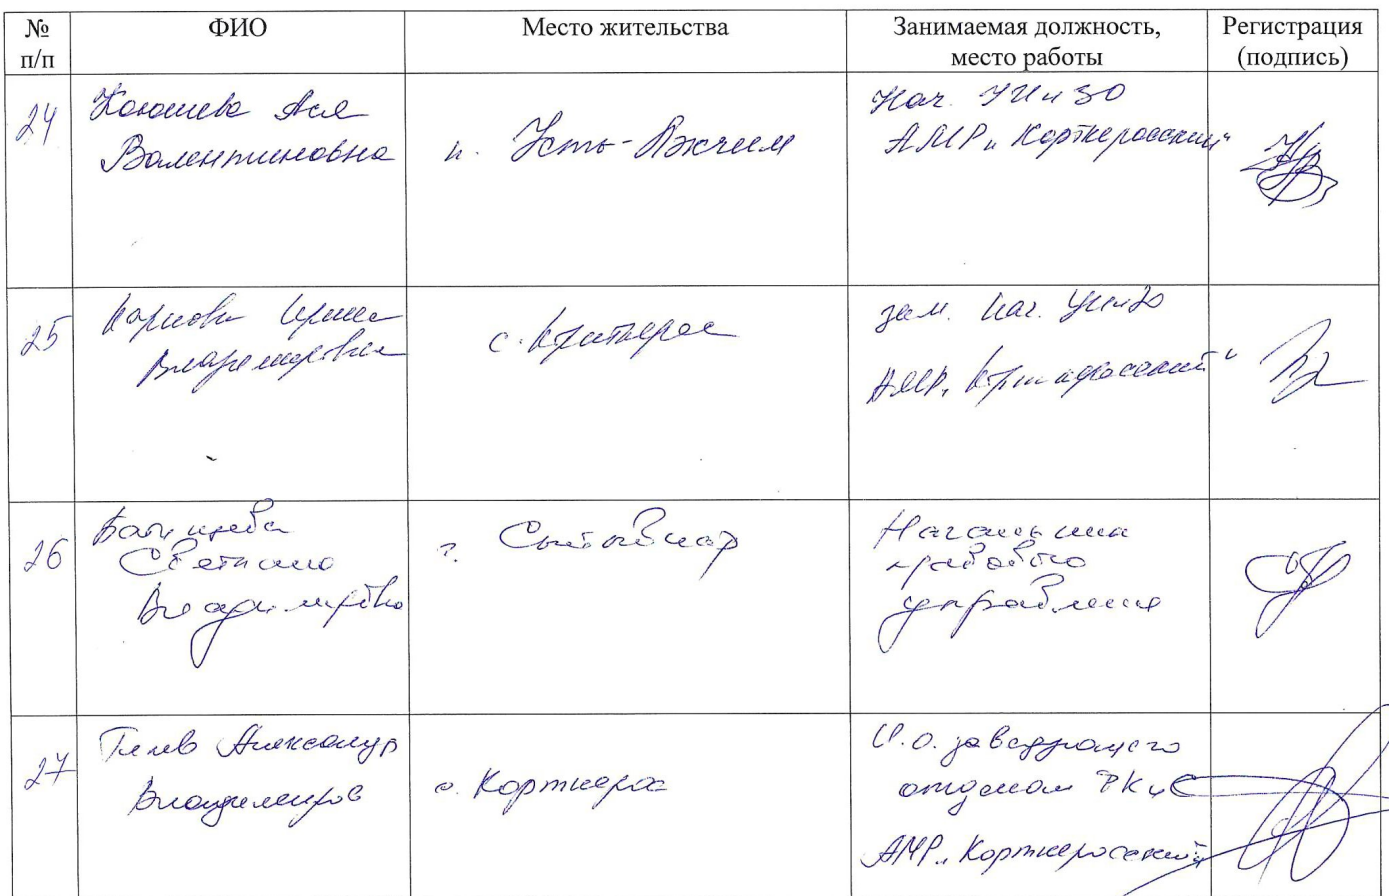 № п/п
ФИО
Место жительства
Занимаемая должность,
место работы
Регистрация
(подпись)
24
Коюшева Ася
Валентиновна
п. Усть-Лэкчим
Нач. УИиЗО
АМР „Корткеросский"
25
Карпова Ирина
Владимировна
с. Корткерос
зам. нач. УИиЗО
АМР „Корткеросский"
26
Светлана
Владимировна
г. Сыктывкар
Начальник
правового
управления
27
Александр
Владимиров
с. Корткерос
И.о. заведующего
отделом ФКиС
АМР „Корткеросский"